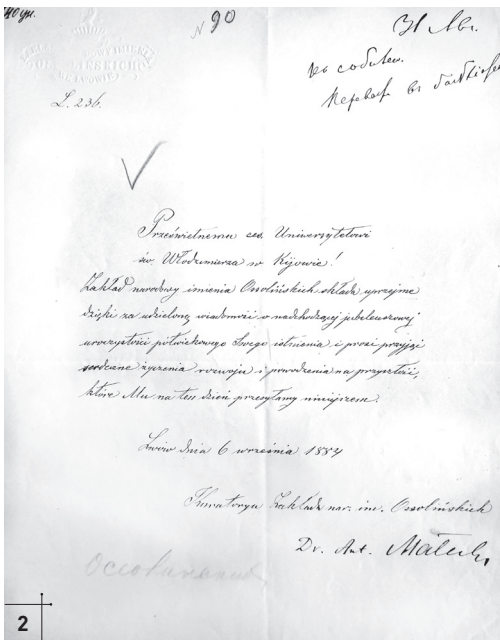 N 90
31 Авг.
L. 236.
Prześwietnemu ces. Uniwersytetowi
św. Włodzimierza w Kijowie!
Zakład narodowy imienia Ossolińskich składa uprzejme
dzięki za udzieloną wiadomość o nadchodzącej jubeleuszowej
uroczystości półwiekowego Swego istnienia i prosi przyjąć
serdeczne życzenia rozwoju i powodzenia na przyszłość,
które Mu na ten dzień przesyłamy niniejszem.
Lwów dnia 6 września 1884
Kuratorya Zakładu nar. im. Ossolińskich
Dr. Ant. Małecki
2